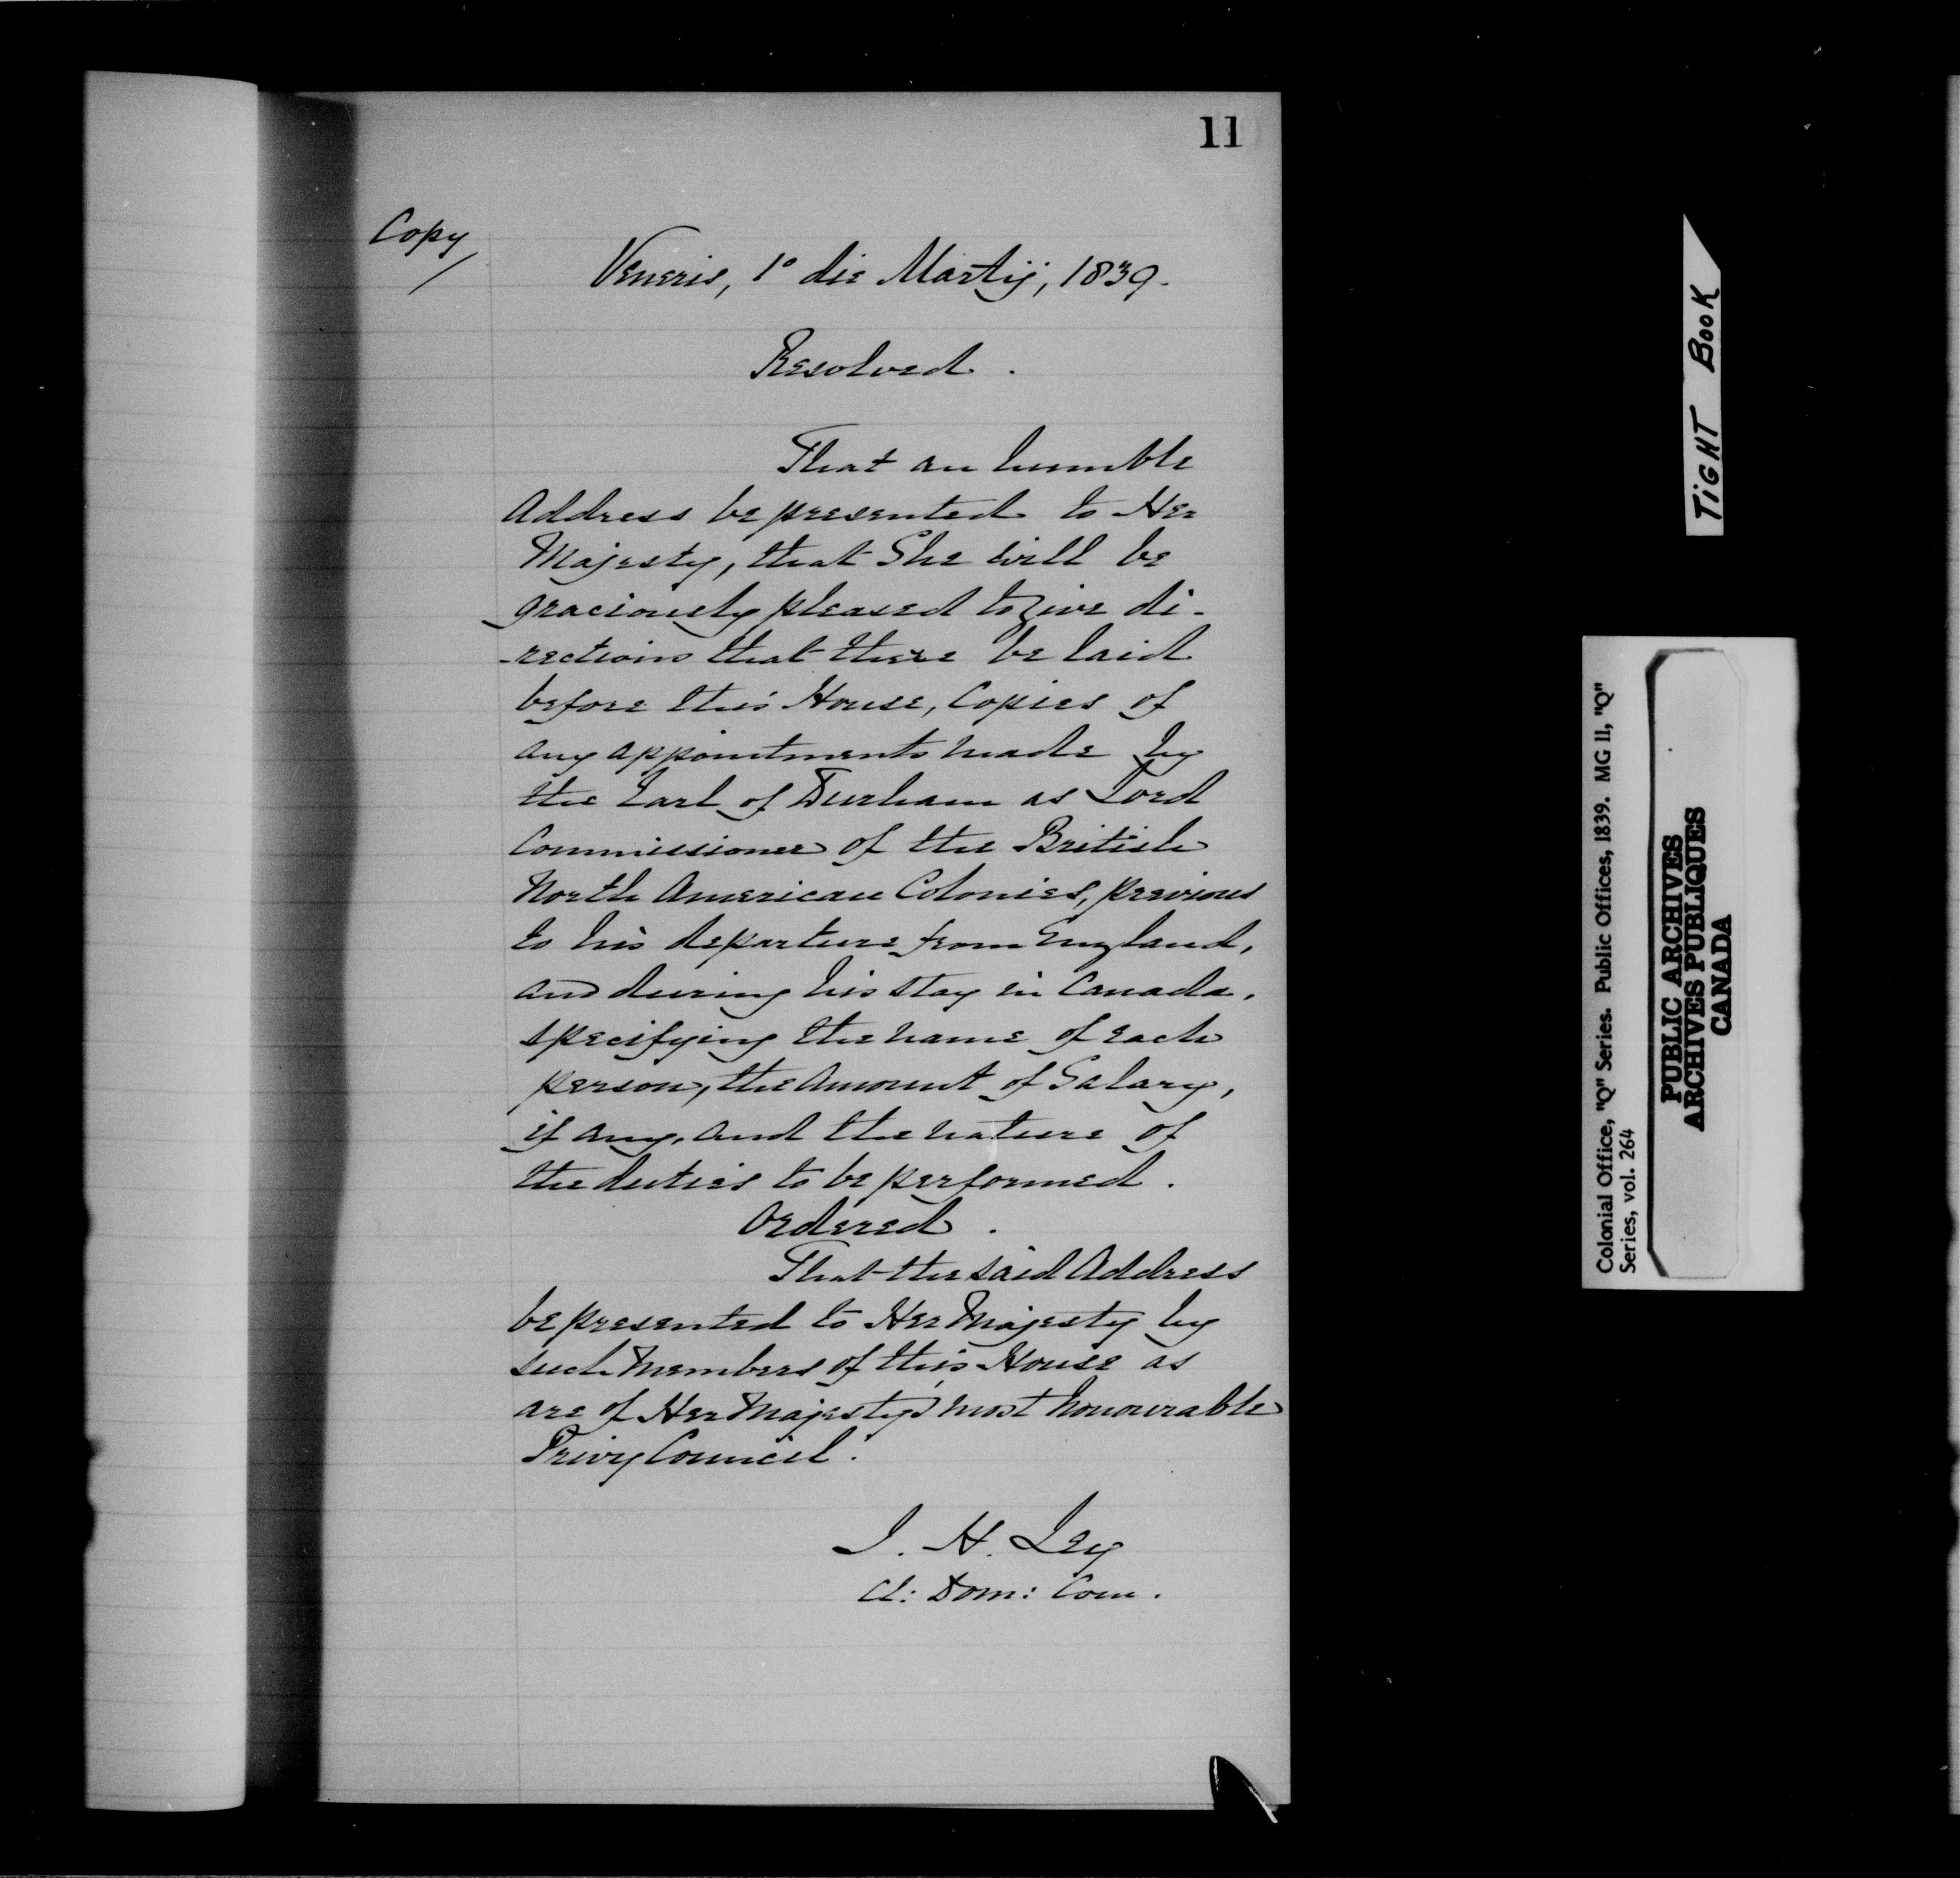 11
Copy/
Veneris, 1° die Martij, 1839.
Resolved.
That an humble
Address be presented to Her
Majesty, that She will be
graciously pleased to give di-
-rections that there be laid
before this House, Copies of
any appointments made by
the Earl of Durham as Lord
Commissioner of the British
North American Colonies, previous
to his departure from England,
and during his stay in Canada,
specifying the name of each
person, the amount of Salary,
if any, and the nature of
the duties to be performed.
Ordered.
That the said Address
be presented to Her Majesty by
such Members of this House as
are of Her Majesty's most honourable
Privy Council.
J. H. Ley
Cl: Dom: Com.
TIGHT BOOK
Colonial Office, "Q" Series. Public Offices, 1839. MG 11, "Q"
Series, vol. 264
PUBLIC ARCHIVES
ARCHIVES PUBLIQUES
CANADA